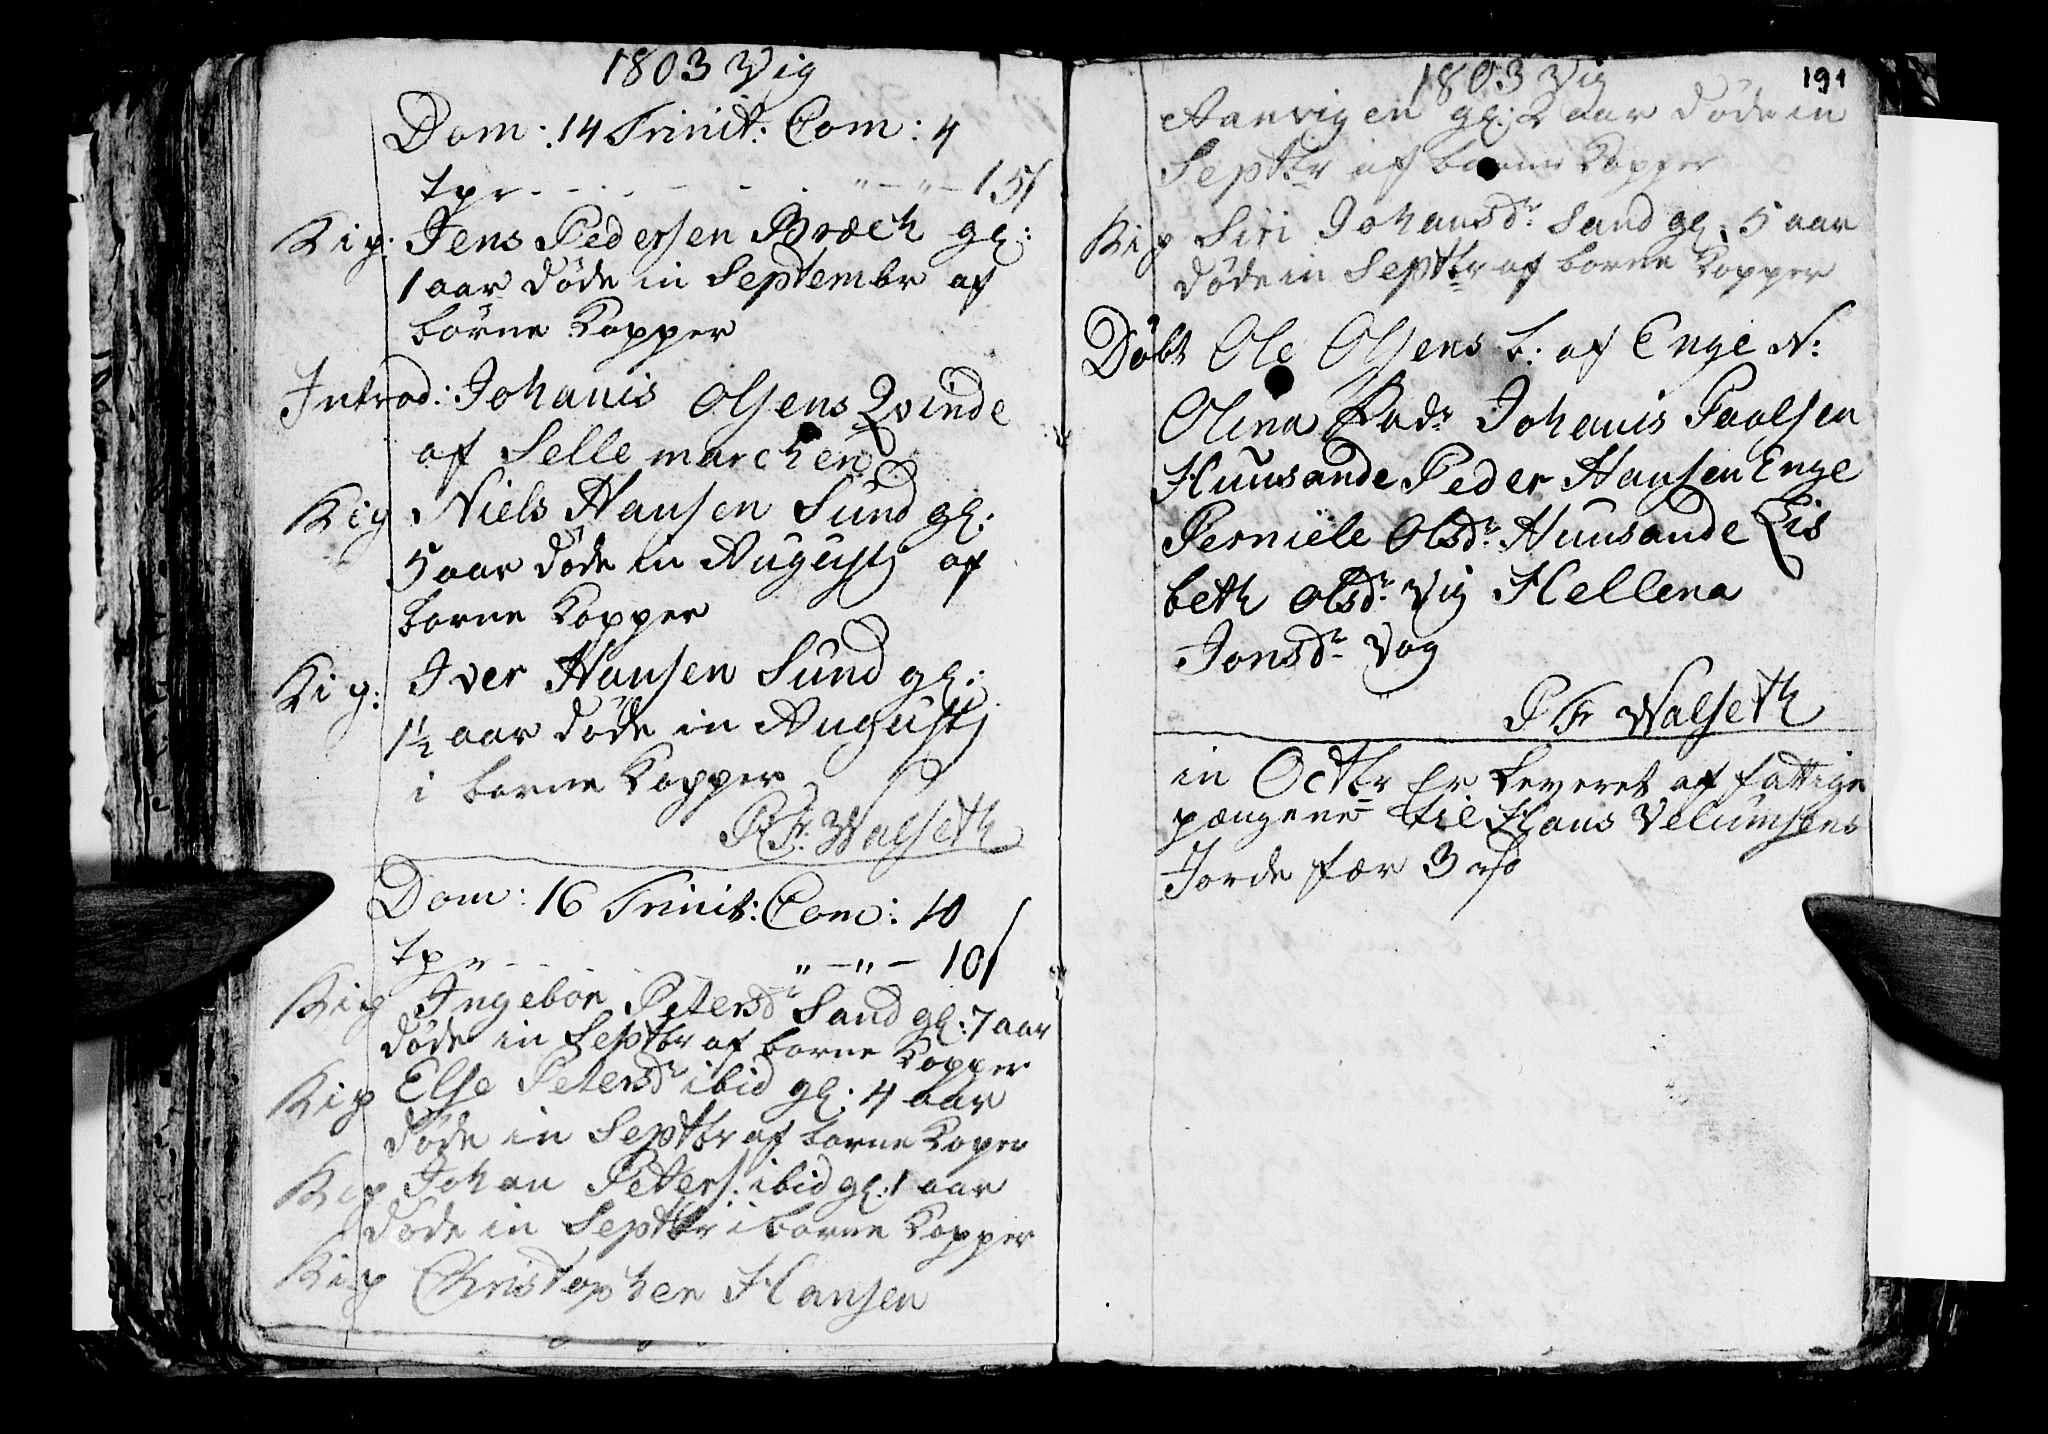 1803 Vig
Dom: 14 Trinit: Com: 4
tpr - - - - - - " - " - 15ʃ
Kip: Jens Pedersen Bræch gl:
1 aar døde in Septembr af
børne Kopper
Introd: Johanis Olsens Qvinde
af Sellemarchen
Kip Niels Hansen Sund gl:
5 aar døde in Augustj af
borne Kopper
Kip: Iver Hansen Sund gl:
1½ aar døde in Augustj
i borne Kopper
P Fr: Walseth
Dom: 16 Trinit: Com: 10
tpr - - - - " - " - 10ʃ
Kip Ingebor Petersdr Sand gl: 7 aar
døde in Septbr af borne Kopper
Kip Else Petersdr ibid gl: 4 aar
døde in Septbr af borne Koper
Kip Johan Peters: ibid gl: 1 aar
døde in Septbr i borne Kopper
Kip Christopher Hansen
1803 Vig 191
Aanvigen gl: 2 aar døde in
Septbr af borne Kopper
Kip Siri Johansdr Sand gl. 5 aar
døde in Septbr af borne Kopper
Døbt Ole Olsens b: af Enge N:
Olina Fadr Johanis Paalsen
Huusande Peder Hansen Enge
Perniele Olsdr Huusande Lis
beth Olsdr Vig Hellena
Jonsdr Vog
P Fr Walseth
in Octbr er Leveret af fattige
pængene til Hans Velumsens
Jorde fær 3 rd